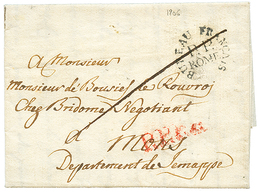 1806
BUREAU FRANÇAIS
ROME
A Monsieur
Monsieur de Bousies de Rouvroj
Chez Bridome Negotiant
a
Mons
Departement de Jemappe